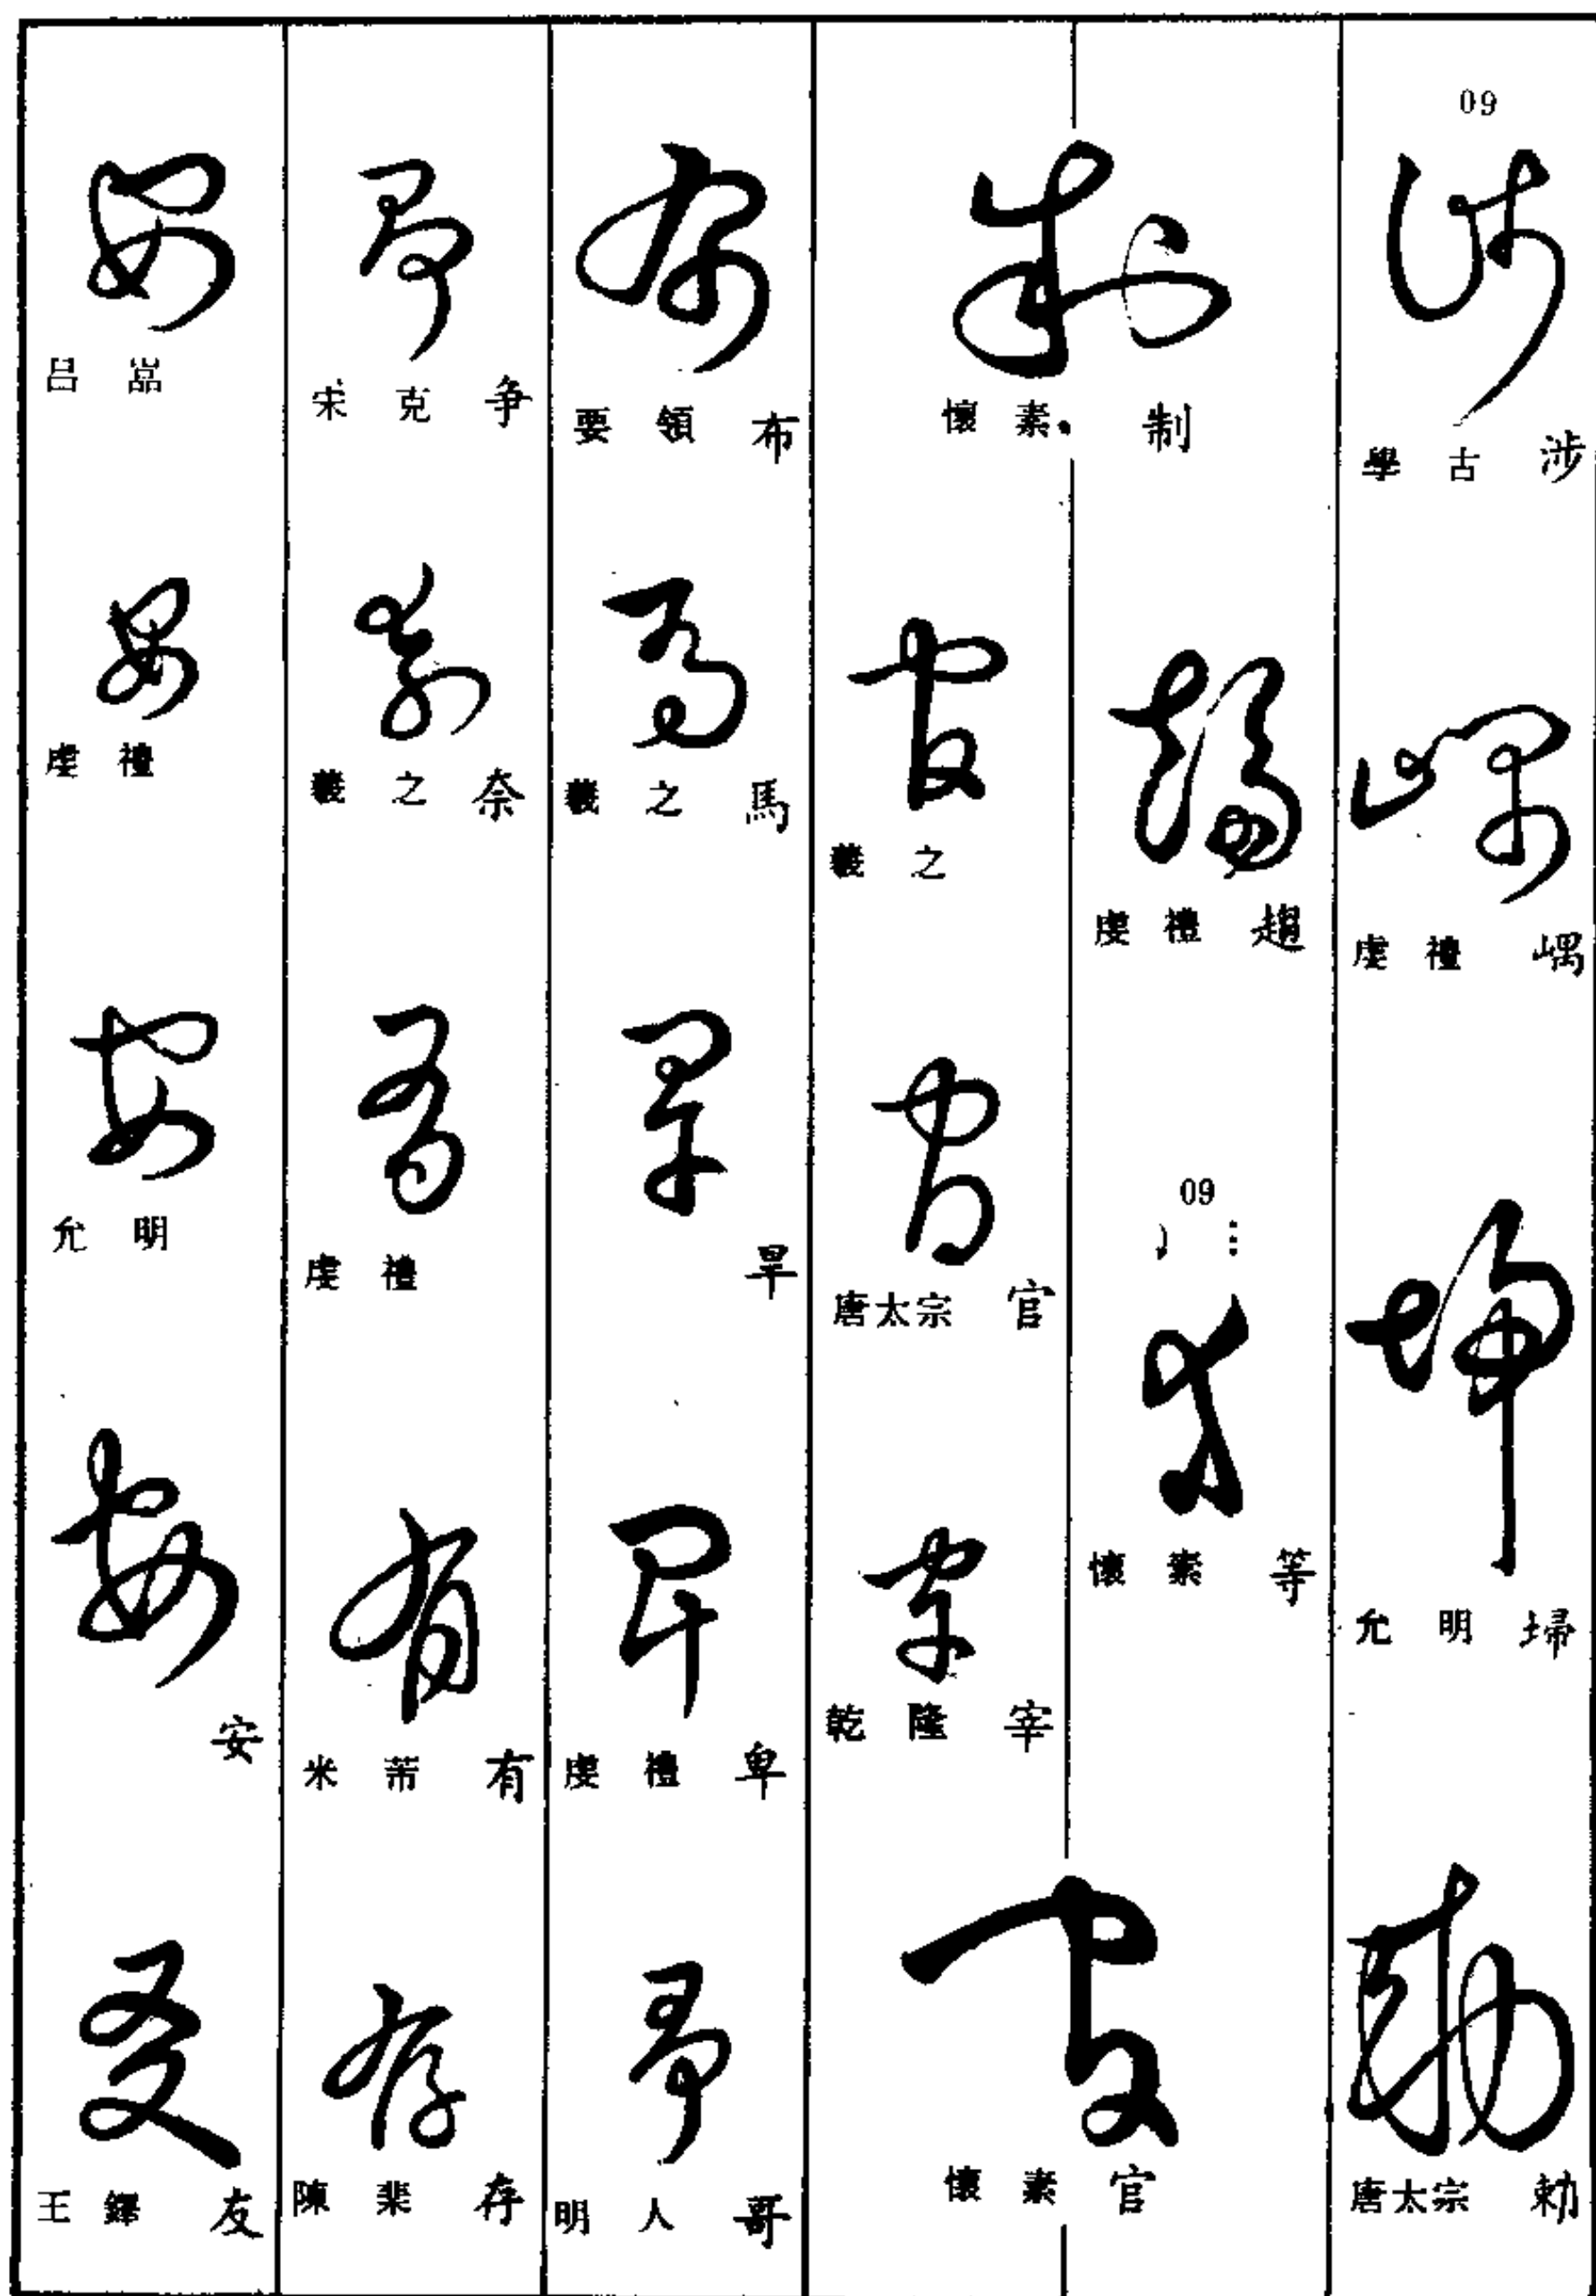 09
學古 涉
虔禮 嵎
允明 埽
唐太宗 勅
懷素 制
虔禮 趨
09
懷素 等
羲之
唐太宗 官
乾隆 宰
懷素 官
要領 布
羲之 馬
罕
虔禮 卑
明人 哥
宋克 争
羲之 奈
虔禮
米芾 有
陳裴 存
呂嵒
虔禮
允明
安
王鐸 友